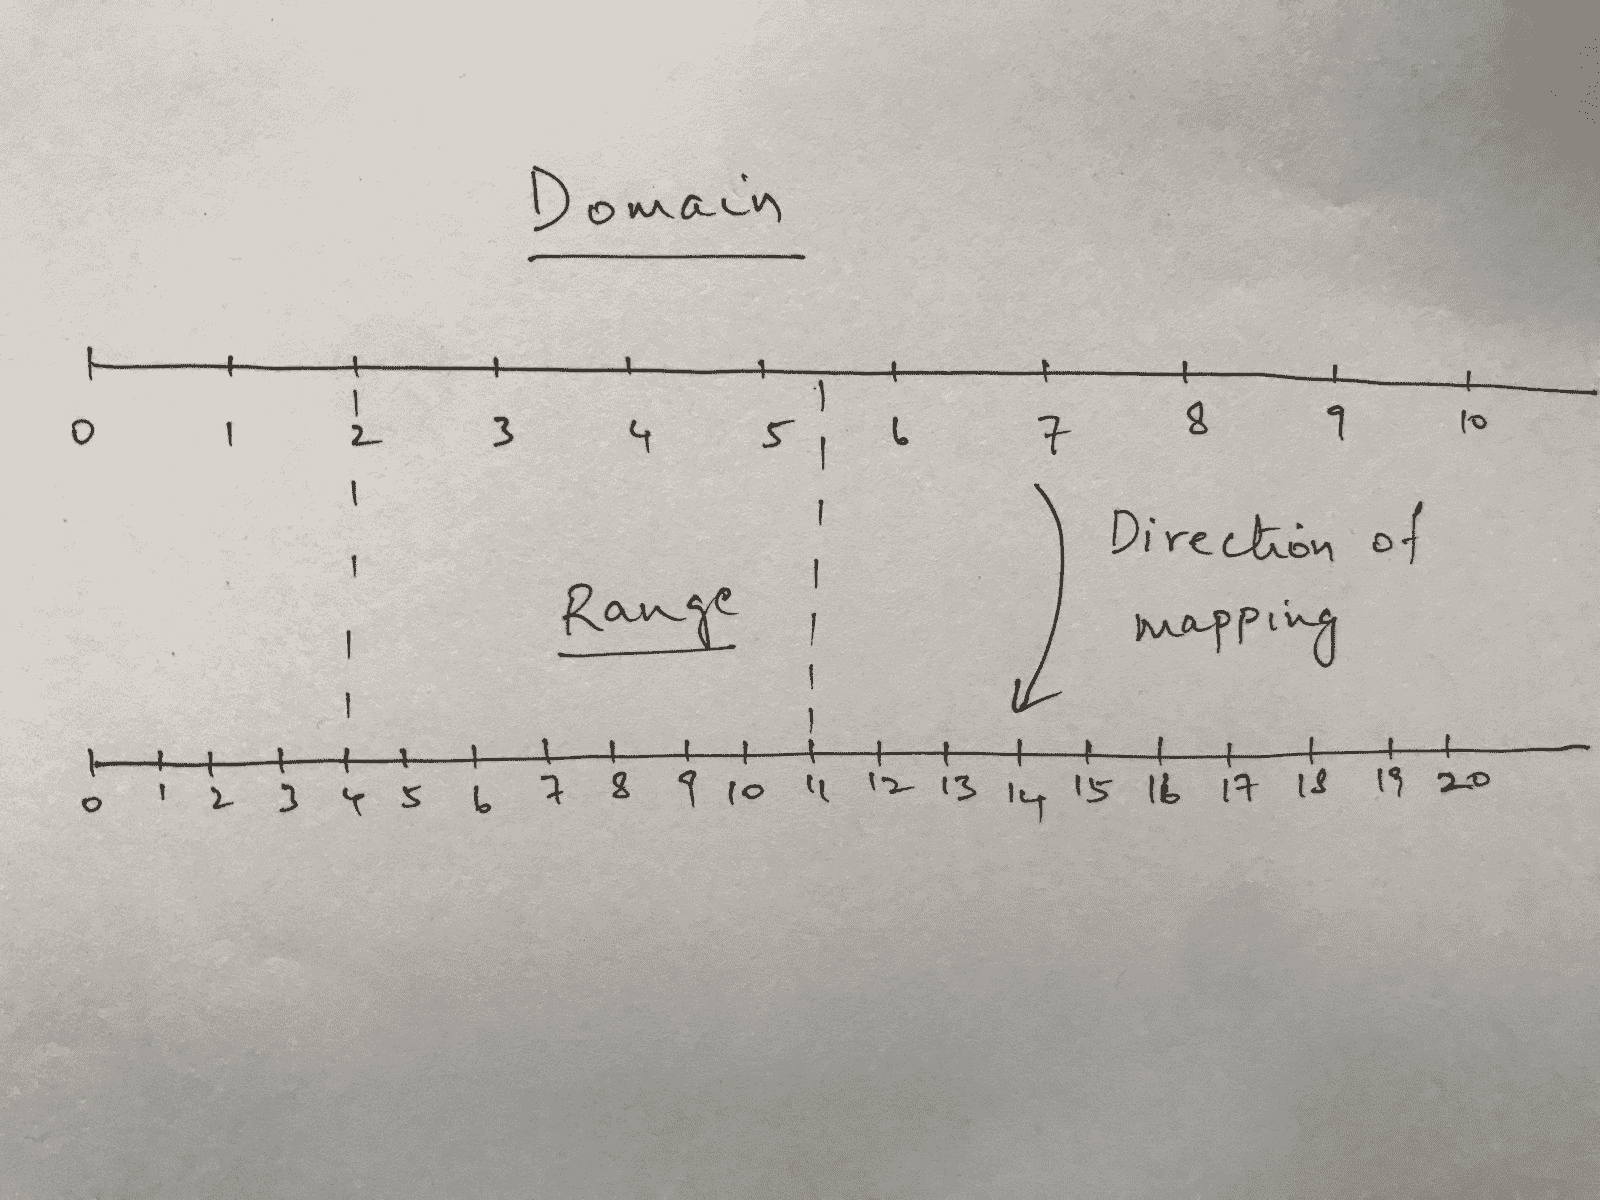 Domain
0 1 2 3 4 5 6 7 8 9 10
Direction of
mapping
Range
0 1 2 3 4 5 6 7 8 9 10 11 12 13 14 15 16 17 18 19 20